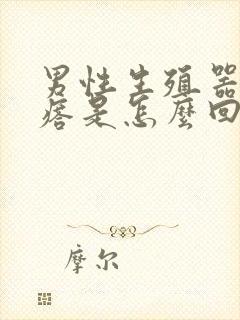 男性生殖器
痞是怎麼回
摩尔